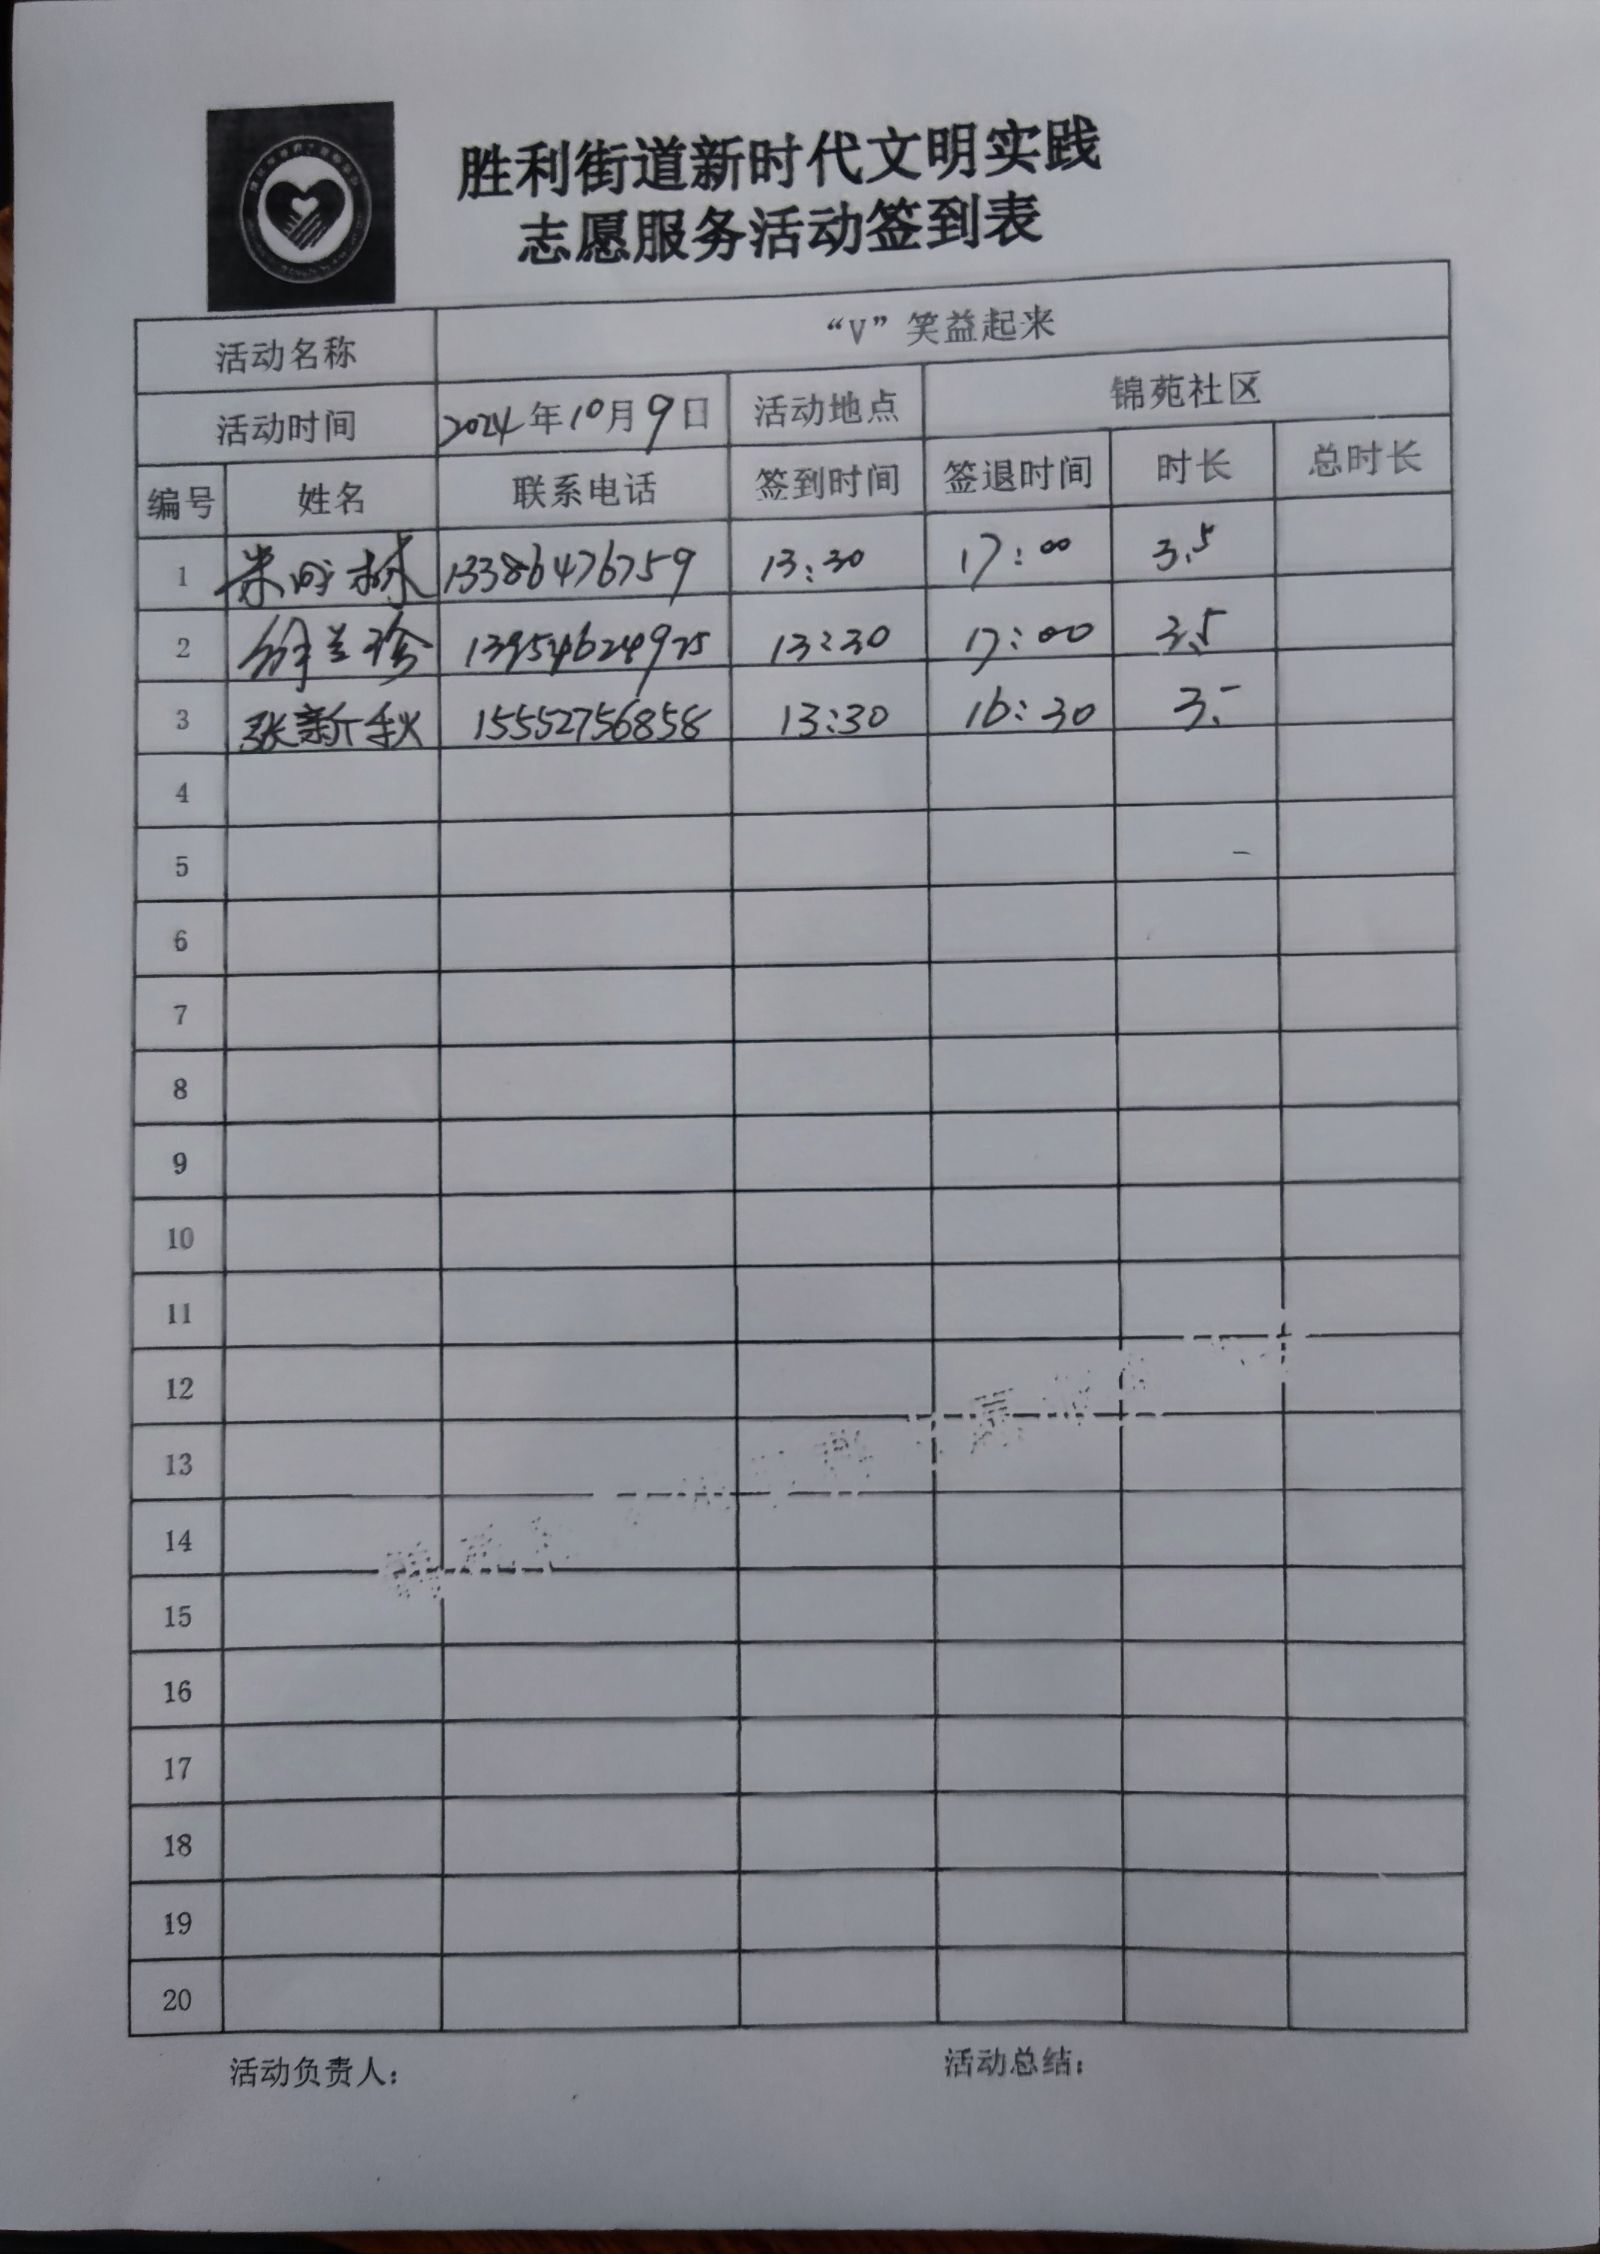 胜利街道新时代文明实践
志愿服务活动签到表
活动名称 “V”笑益起来
活动时间 2024年10月9日 活动地点 锦苑社区
编号 姓名 联系电话 签到时间 签退时间 时长 总时长
1 13386476759 13:30 17:00 3.5
2 徐兰珍 13954624975 13:30 17:00 3.5
3 张新秋 15552756858 13:30 16:30 3.
4
5
6
7
8
9
10
11
12
13
14
15
16
17
18
19
20
活动负责人： 活动总结：